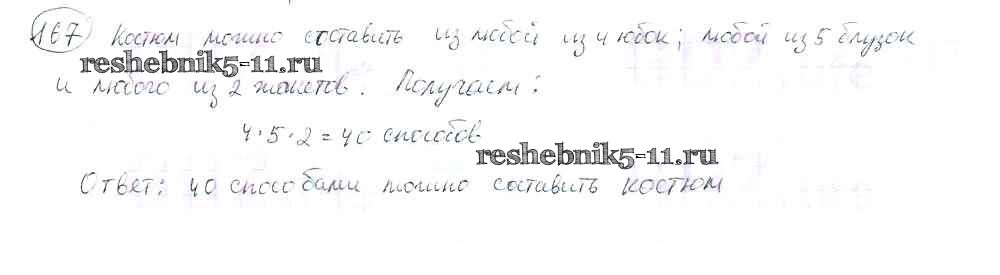 167 Костюм можно составить из любой из 4 юбок; любой из 5 блузок
reshebnik5-11.ru
и любого из 2 жакетов. Получаем:
4·5·2=40 способов
reshebnik5-11.ru
Ответ: 40 способами можно составить костюм